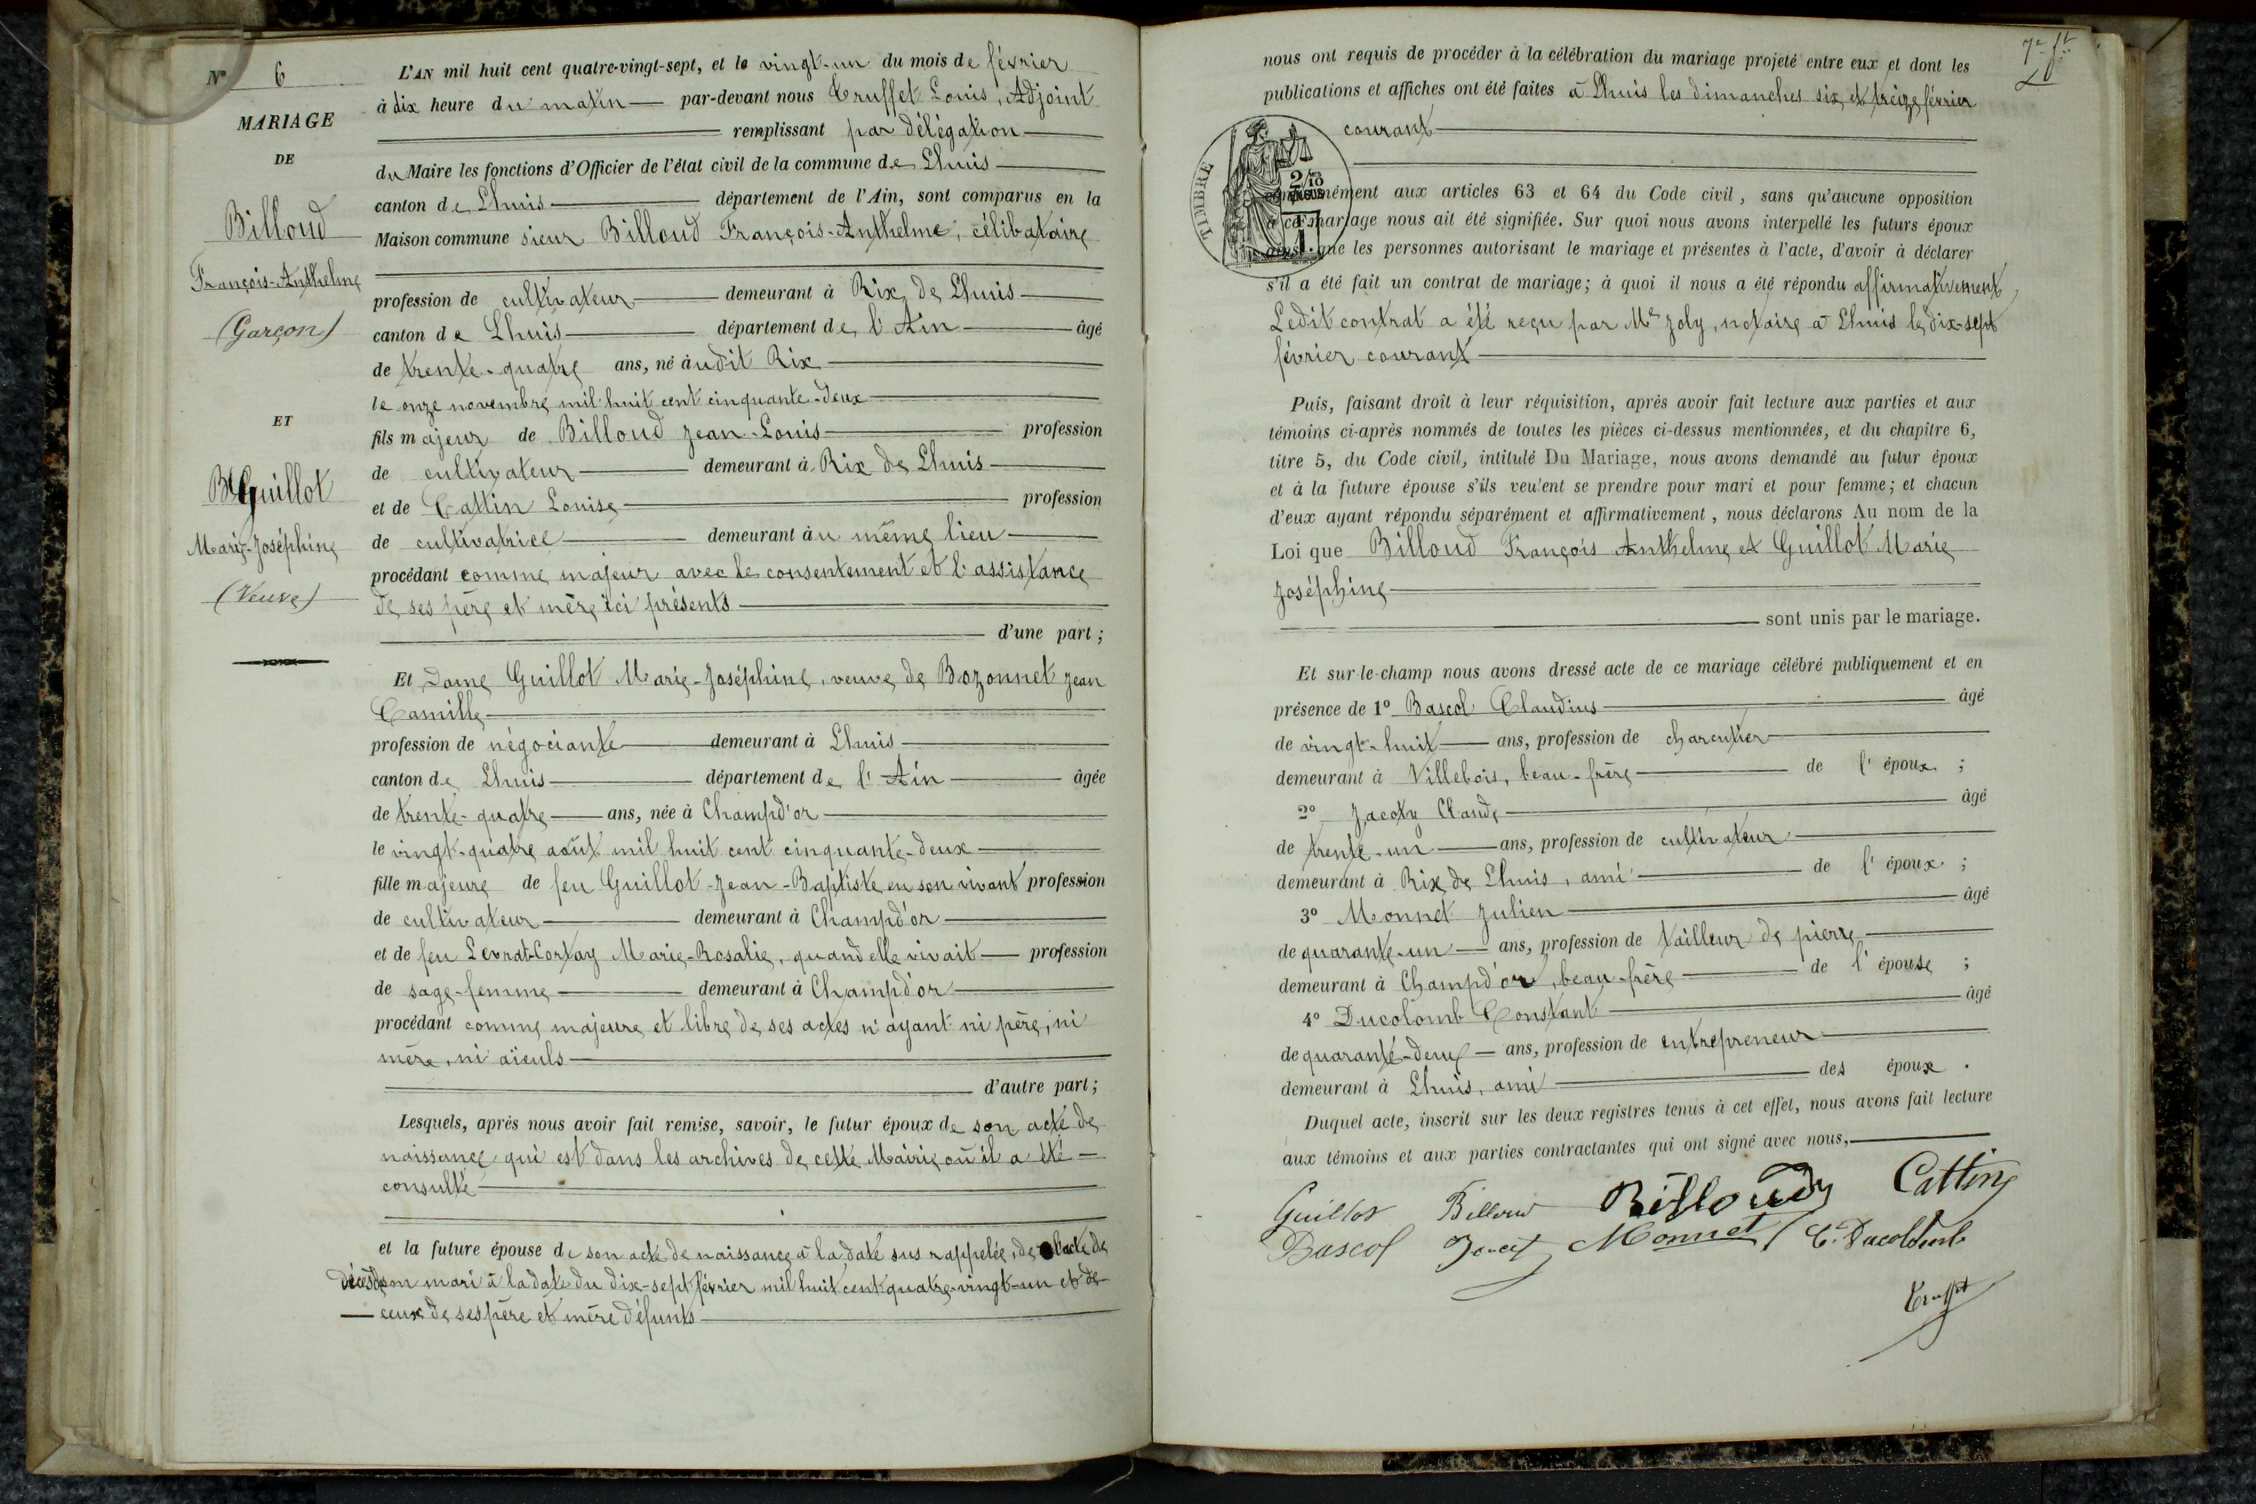 N° 6
MARIAGE
DE
Billoud
François-Anthelme
(Garçon)
ET
Guillot
Marie-Joséphine
(Veuve)
L'AN mil huit cent quatre-vingt-sept, et le vingt-un du mois de février
à dix heure du matin par-devant nous Truffet Louis, Adjoint
remplissant par délégation
du Maire les fonctions d'Officier de l'état civil de la commune de Lhuis
canton de Lhuis département de l'Ain, sont comparus en la
Maison commune sieur Billoud François-Anthelme, célibataire
profession de cultivateur demeurant à Rix de Lhuis
canton de Lhuis département de l'Ain âgé
de trente-quatre ans, né àudit Rix
le onze novembre mil huit cent cinquante-deux
fils majeur de Billoud Jean-Louis profession
de cultivateur demeurant à Rix de Lhuis
et de Cattin Louise profession
de cultivatrice demeurant àu même lieu
procédant comme majeur avec le consentement et l'assistance
de ses père et mère ici présents
d'une part ;
Et Dame Guillot Marie-Joséphine, veuve de Bozonnet Jean
Camille
profession de négociante demeurant à Lhuis
canton de Lhuis département de l'Ain âgée
de trente-quatre ans, née à Champd'or
le vingt-quatre août mil huit cent cinquante-deux
fille majeure de feu Guillot-Jean-Baptiste en son vivant profession
de cultivateur demeurant à Champd'or
et de feu Levrat-Cortay Marie-Rosalie, quand elle vivait profession
de sage-femme demeurant à Champd'or
procédant comme majeure et libre de ses actes n'ayant ni père, ni
mère, ni aïeuls
d'autre part ;
Lesquels, après nous avoir fait remise, savoir, le futur époux de son acte de
naissance qui est dans les archives de cette Mairie où il a été
consulté
et la future épouse de son acte de naissance à la date sus rappelée, de l'acte de
décès de son mari à la date du dix-sept février mil huit cent quatre-vingt-un et de
ceux de ses père et mère défunts
7e ft
nous ont requis de procéder à la célébration du mariage projeté entre eux et dont les
publications et affiches ont été faites à Lhuis les dimanches six et treize février
courant
TIMBRE
2/10
EN SUS
1 F
conformément aux articles 63 et 64 du Code civil, sans qu'aucune opposition
à ce mariage nous ait été signifiée. Sur quoi nous avons interpellé les futurs époux
ainsi que les personnes autorisant le mariage et présentes à l'acte, d'avoir à déclarer
s'il a été fait un contrat de mariage ; à quoi il nous a été répondu affirmativement,
Ledit contrat a été reçu par Me Joly, notaire à Lhuis le dix-sept
février courant
Puis, faisant droit à leur réquisition, après avoir fait lecture aux parties et aux
témoins ci-après nommés de toutes les pièces ci-dessus mentionnées, et du chapitre 6,
titre 5, du Code civil, intitulé Du Mariage, nous avons demandé au futur époux
et à la future épouse s'ils veulent se prendre pour mari et pour femme ; et chacun
d'eux ayant répondu séparément et affirmativement, nous déclarons Au nom de la
Loi que Billoud François Anthelme et Guillot Marie
Joséphine
sont unis par le mariage.
Et sur-le-champ nous avons dressé acte de ce mariage célébré publiquement et en
présence de 1° Bascol Claudius âgé
de vingt-huit ans, profession de charcutier
demeurant à Villebois, beau-frère de l'époux ;
2° Jacoty Claude âgé
de trente-un ans, profession de cultivateur
demeurant à Rix de Lhuis, ami de l'époux ;
3° Monnet Julien âgé
de quarante-un ans, profession de tailleur de pierre
demeurant à Champd'or, beau-frère de l'épouse ;
4° Ducolomb Constant âgé
de quarante-deux ans, profession de entrepreneur
demeurant à Lhuis, ami des époux.
Duquel acte, inscrit sur les deux registres tenus à cet effet, nous avons fait lecture
aux témoins et aux parties contractantes qui ont signé avec nous,
Guillot Billoud Billoud Cattin
Bascol Monnet C. Ducolomb
Truffet